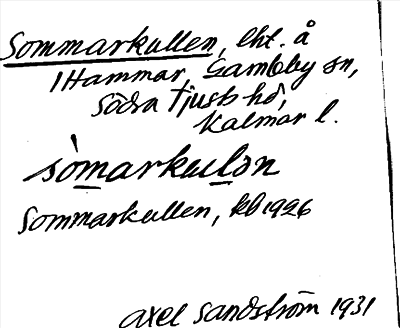 Sommarkullen, lht. å
1 Hammar, Gamleby sn,
Södra Tjusts hd,
Kalmar l.
sòmarkulən
Sommarkullen, kb 1926
Axel Sandström 1931